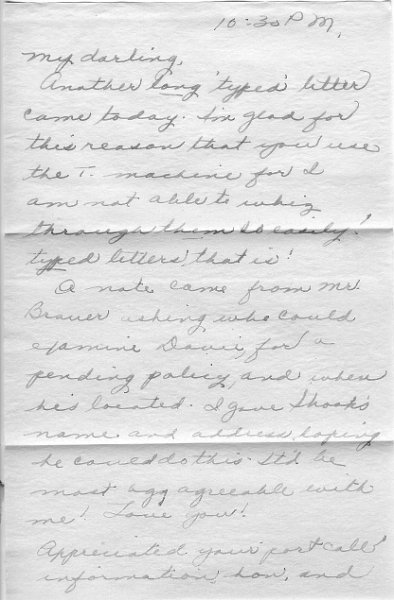 10:30 P.M.
My darling,
Another long 'typed' letter
came today. I'm glad for
this reason that you use
the T. machine for I
am not able to whiz
through them so easily!
typed letters, that is!
A note came from Mr.
Brauer asking who could
examine Davie, for a
pending policy, and when
he's located. I gave Shook's
name and address, hoping
he could do this. It'd be
most agg agreeable with
me! Love you!
Appreciated your port call
information, hon, and